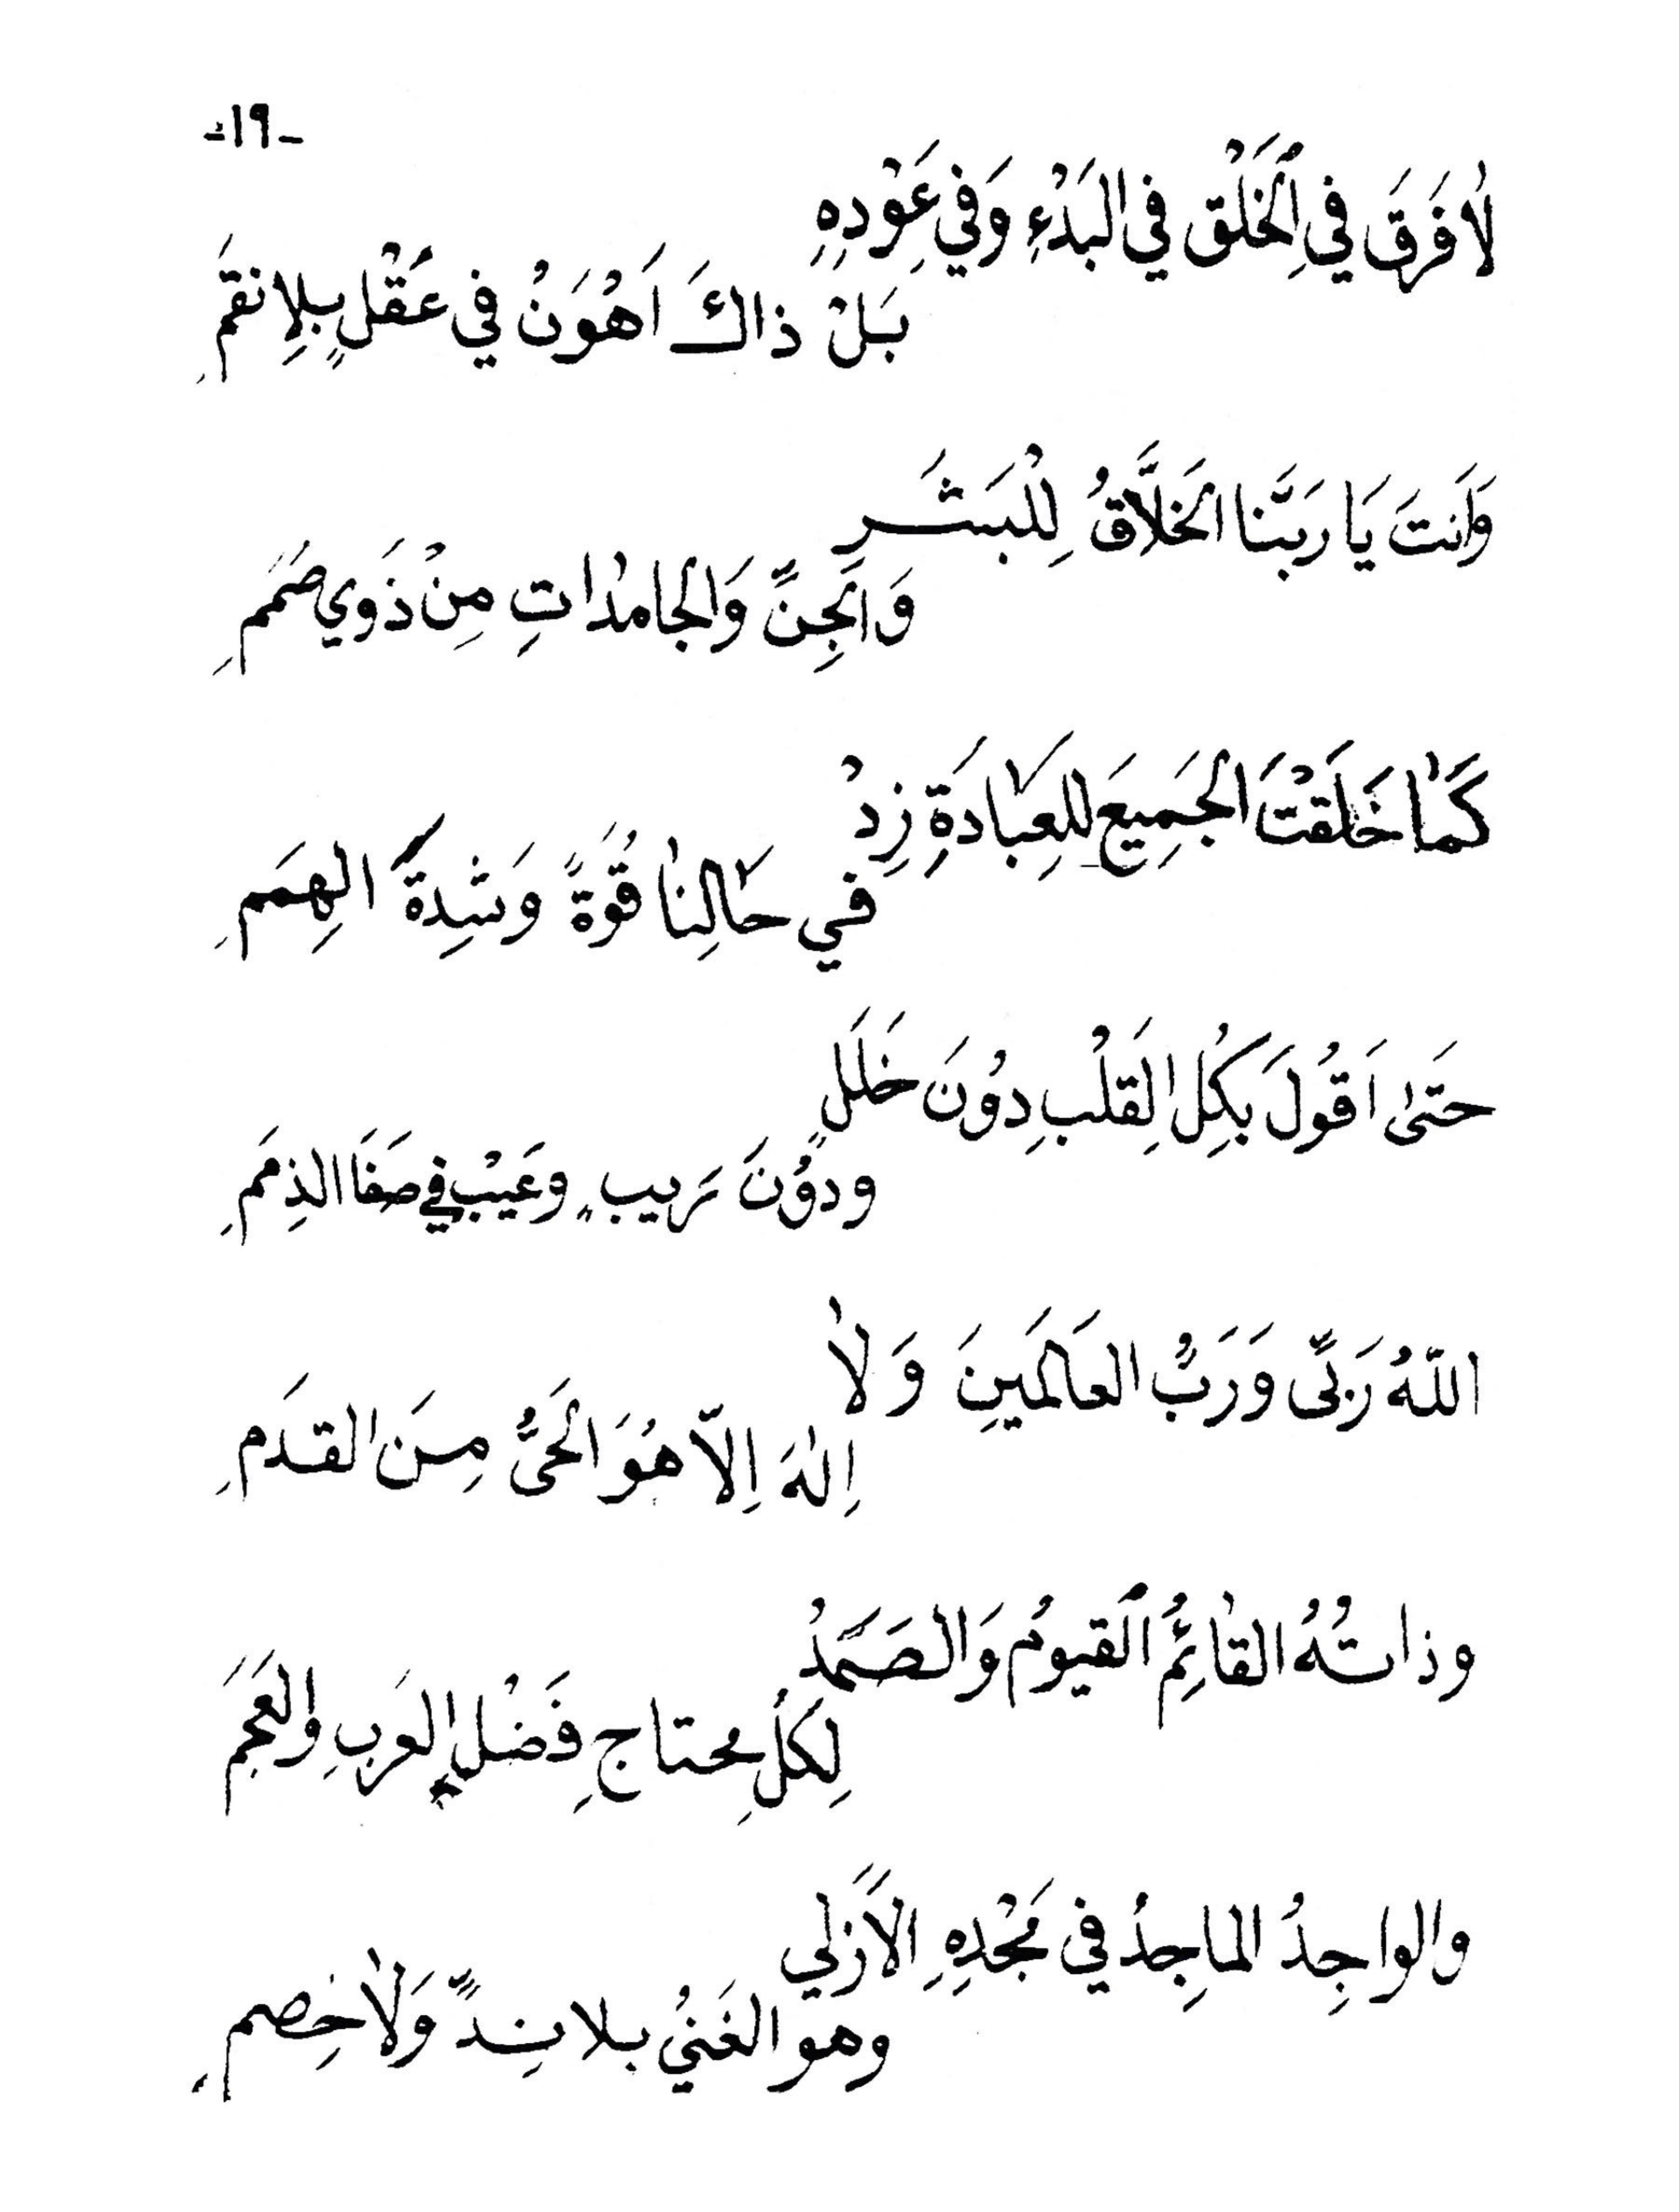 -١٩-
لاٰ فَرَقَ في اِلْخَلْق في البَدْءِ وَفي عَوْدِهِ
بَلْ ذاكَ اَهْوَنُ في عَقْلٍ بِلاٰ نقَمِ
وَاَنتَ يَا رَبَّنا الخَلاَّقُ لِلْبَشَرِ
وَالجِنِّ وَالجامدٰاتِ مِنْ ذَوي صَمَمِ
كَمٰا خَلَقْتَ الجَمِيعَ للِعِبٰادَةِ زِدْ
في حٰالِنٰا قُوَةً وَشِدةَ الهِمَمِ
حَتىٰ اَقُولَ بِكُلِ القَلْبِ دوُنَ خَلَلٍ
ودوُنَ رَيبٍ وعَيْبٍ في صَفَا الذِمَمِ
اللّٰهُ رَبّى وَرَبُّ العَالَمَينِ وَلاٰ
اِلٰهَ اِلاّ هُوَ الحَىُّ مِنَ القدَمِ
وذاتُهُ القٰائِمُ القيوُم وَالصَمَدُ
لِكلِّ محتاجِ فَضْلٍ العَربِ والعَجَمِ
والواجِدُ الماجِدُ في مَجْدِهِ الاَزَلي
وهو الغَنيُ بلا نِدٍّ وَلاٰ خِصَمِ